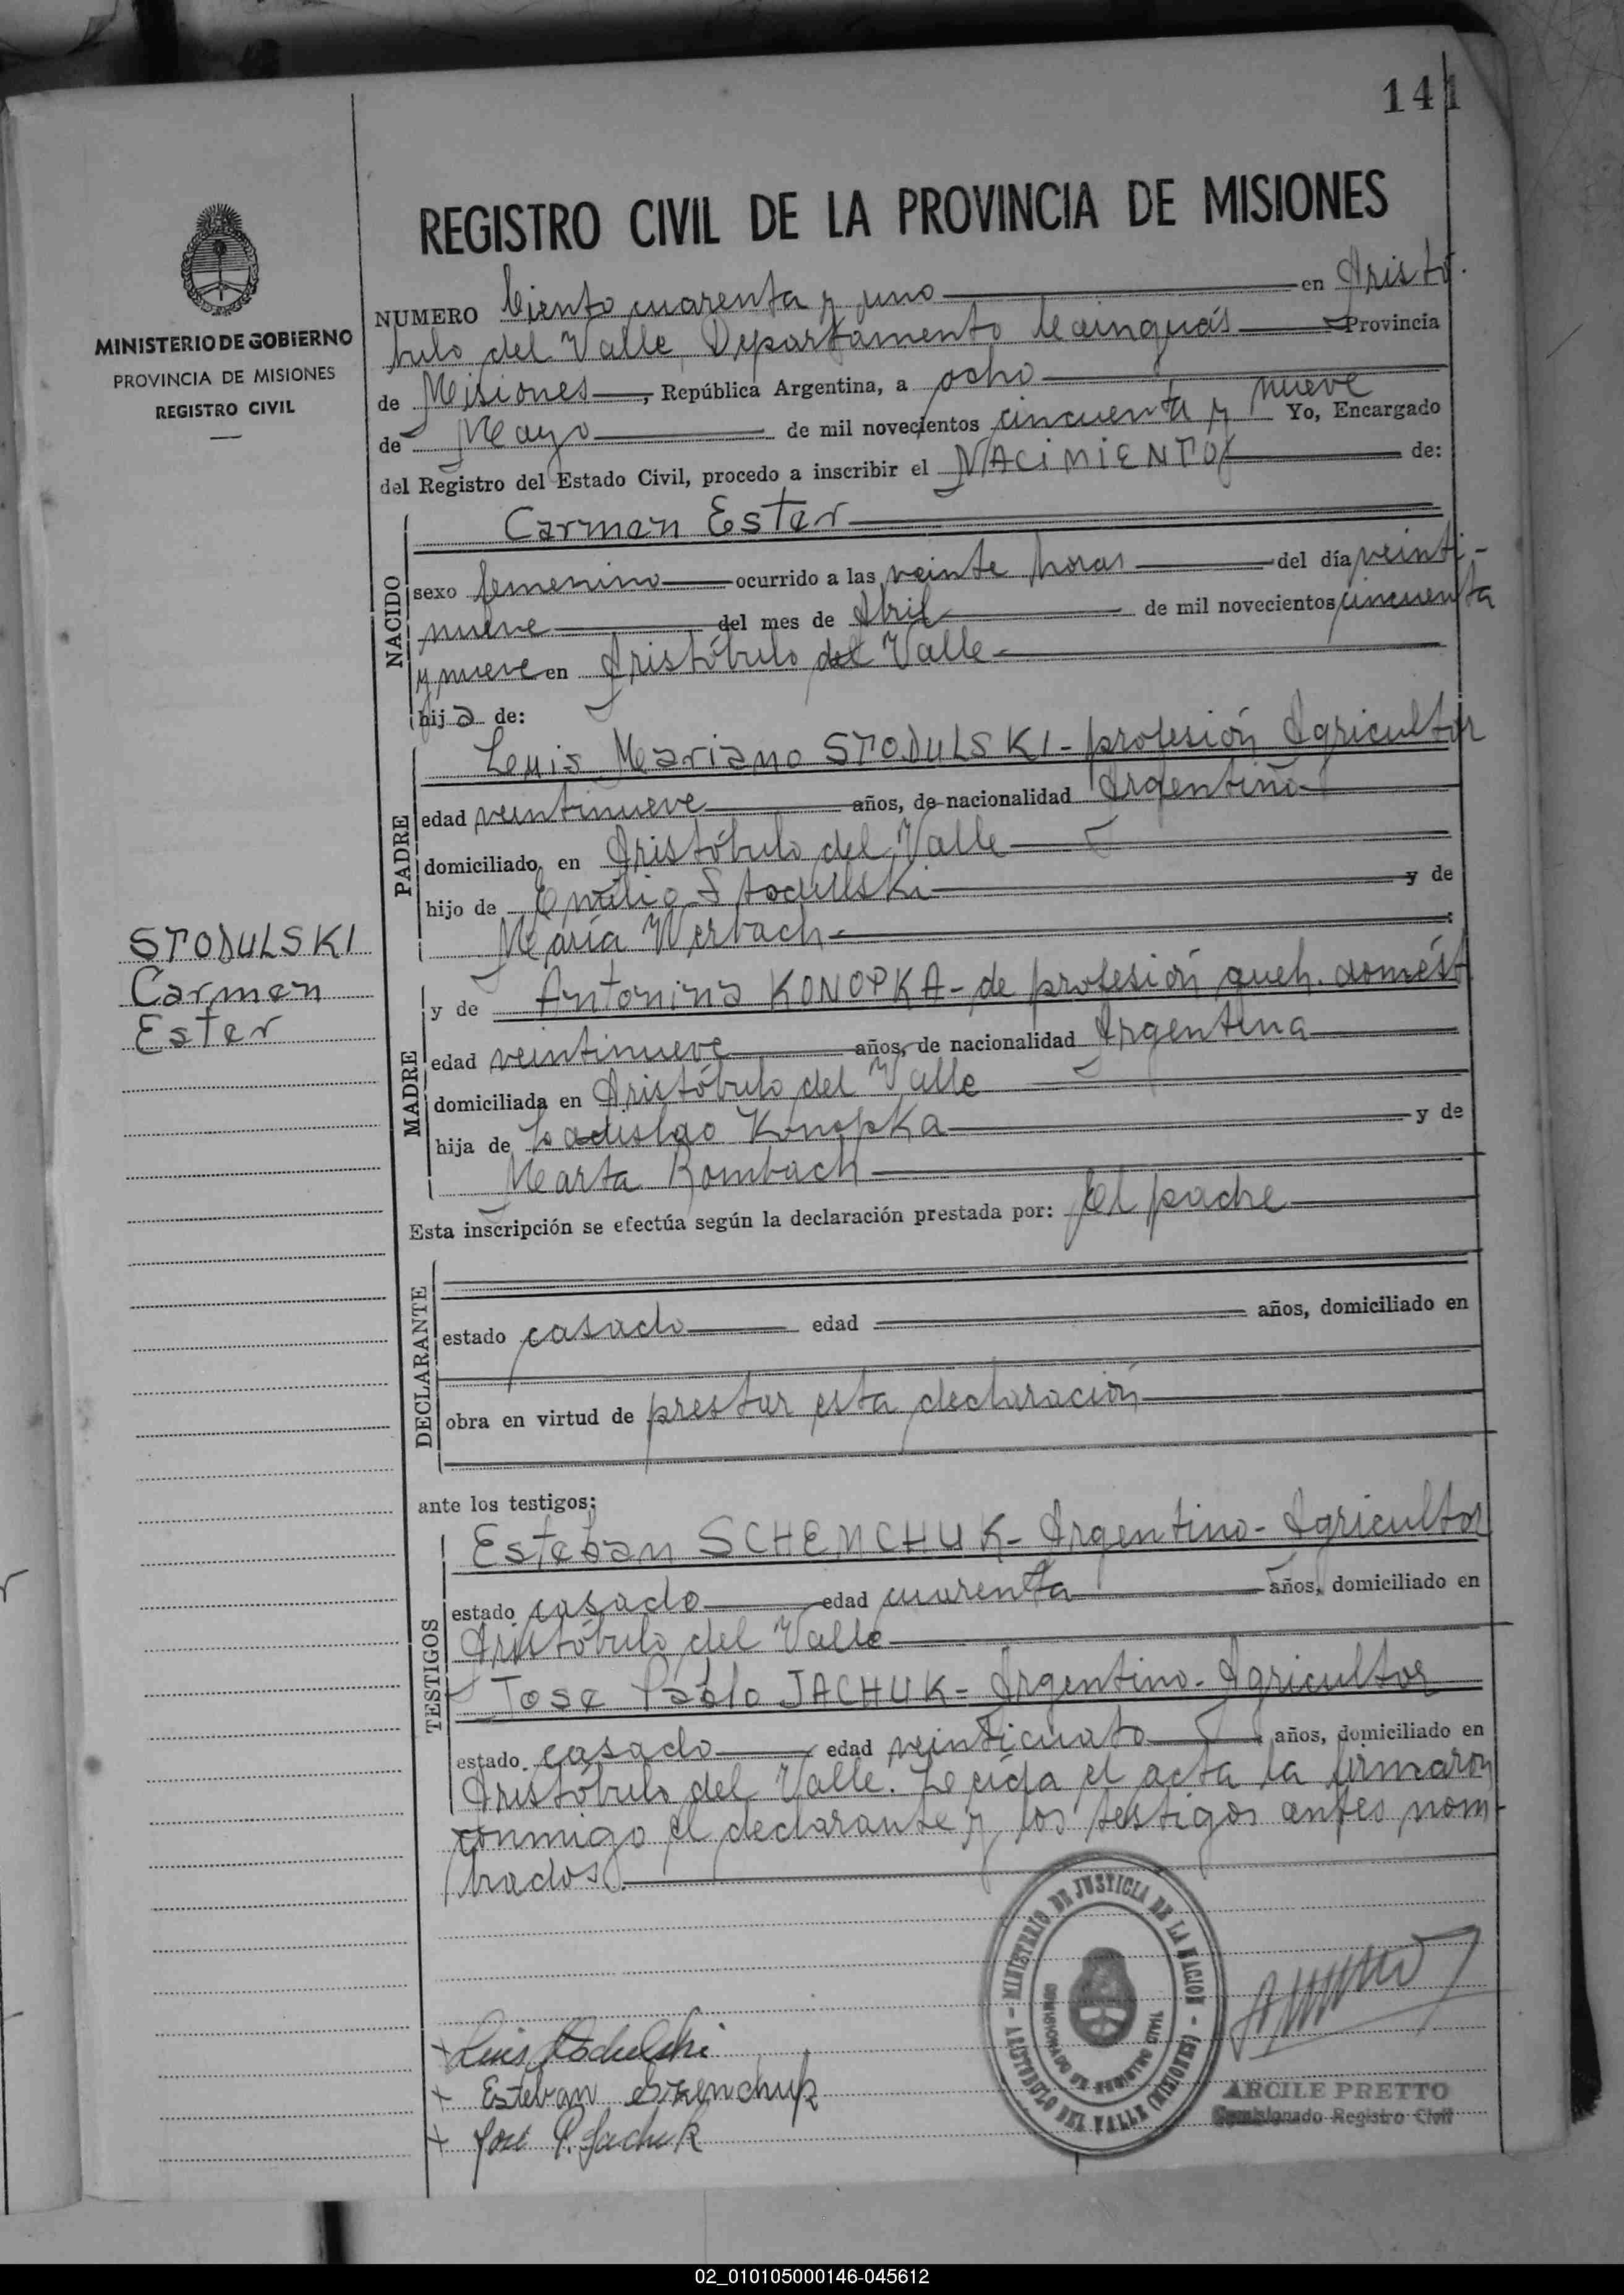 141
REGISTRO CIVIL DE LA PROVINCIA DE MISIONES
MINISTERIO DE GOBIERNO
PROVINCIA DE MISIONES
REGISTRO CIVIL
NUMERO Ciento cuarenta y uno en Aristó
bulo del Valle, Departamento Cainguás Provincia
de Misiones, República Argentina, a ocho
de Mayo de mil novecientos cincuenta y nueve Yo, Encargado
del Registro del Estado Civil, procedo a inscribir el NACIMIENTO de:
NACIDO
Carmen Ester
sexo femenino ocurrido a las veinte horas del día veinti-
nueve del mes de Abril de mil novecientos cincuenta
y nueve en Aristóbulo del Valle
hija de:
PADRE
Luis Mariano STODULSKI - profesión Agricultor
edad veintinueve años, de nacionalidad Argentino
domiciliado en Aristóbulo del Valle
hijo de Emilio Stodulski y de
María Werbach
STODULSKI
Carmen
Ester
MADRE
y de Antonina KONOPKA - de profesión queh. domést
edad veintinueve años, de nacionalidad Argentina
domiciliada en Aristóbulo del Valle
hija de Ladislao Konopka y de
Marta Rombach
Esta inscripción se efectúa según la declaración prestada por: El padre
DECLARANTE
estado casado edad años, domiciliado en
obra en virtud de prestar esta declaración
ante los testigos:
TESTIGOS
Esteban SCHEMCHUK - Argentino - Agricultor
estado casado edad cuarenta años, domiciliado en
Aristóbulo del Valle
Jose Pablo JACHUK - Argentino - Agricultor
estado casado edad veinticuato años, domiciliado en
Aristóbulo del Valle. Leída el acta la firmaron
conmigo el declarante y los testigos antes nom-
brados.
MINISTERIO DE JUSTICIA DE LA NACION - ARISTOBULO DEL VALLE (MISIONES)
Luis Stodulski
Esteban
José P. Jachuk
ARCILE PRETTO
Comisionado Registro Civil
02_010105000146-045612